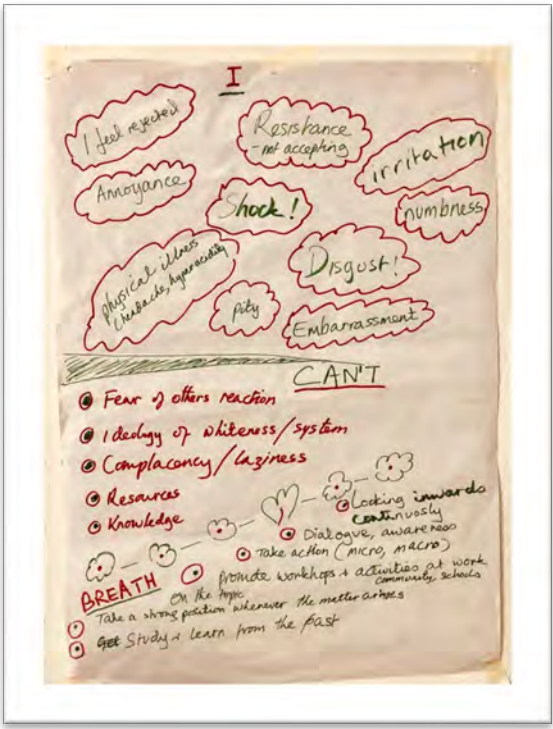 I
I feel rejected
Resistance
- not accepting
irritation
Annoyance
Shock!
numbness
physical illness
(headache, hyperacidity)
Disgust!
pity
Embarrassment
CAN'T
Fear of others reaction
Ideology of whiteness/system
Complacency/laziness
Resources
Knowledge
Looking inwards
continuosly
Dialogue, awareness
Take action (micro, macro)
BREATH
Promote workshops + activities at work
community, schools
on the topic
Take a strong position whenever the matter arises
Study + learn from the past